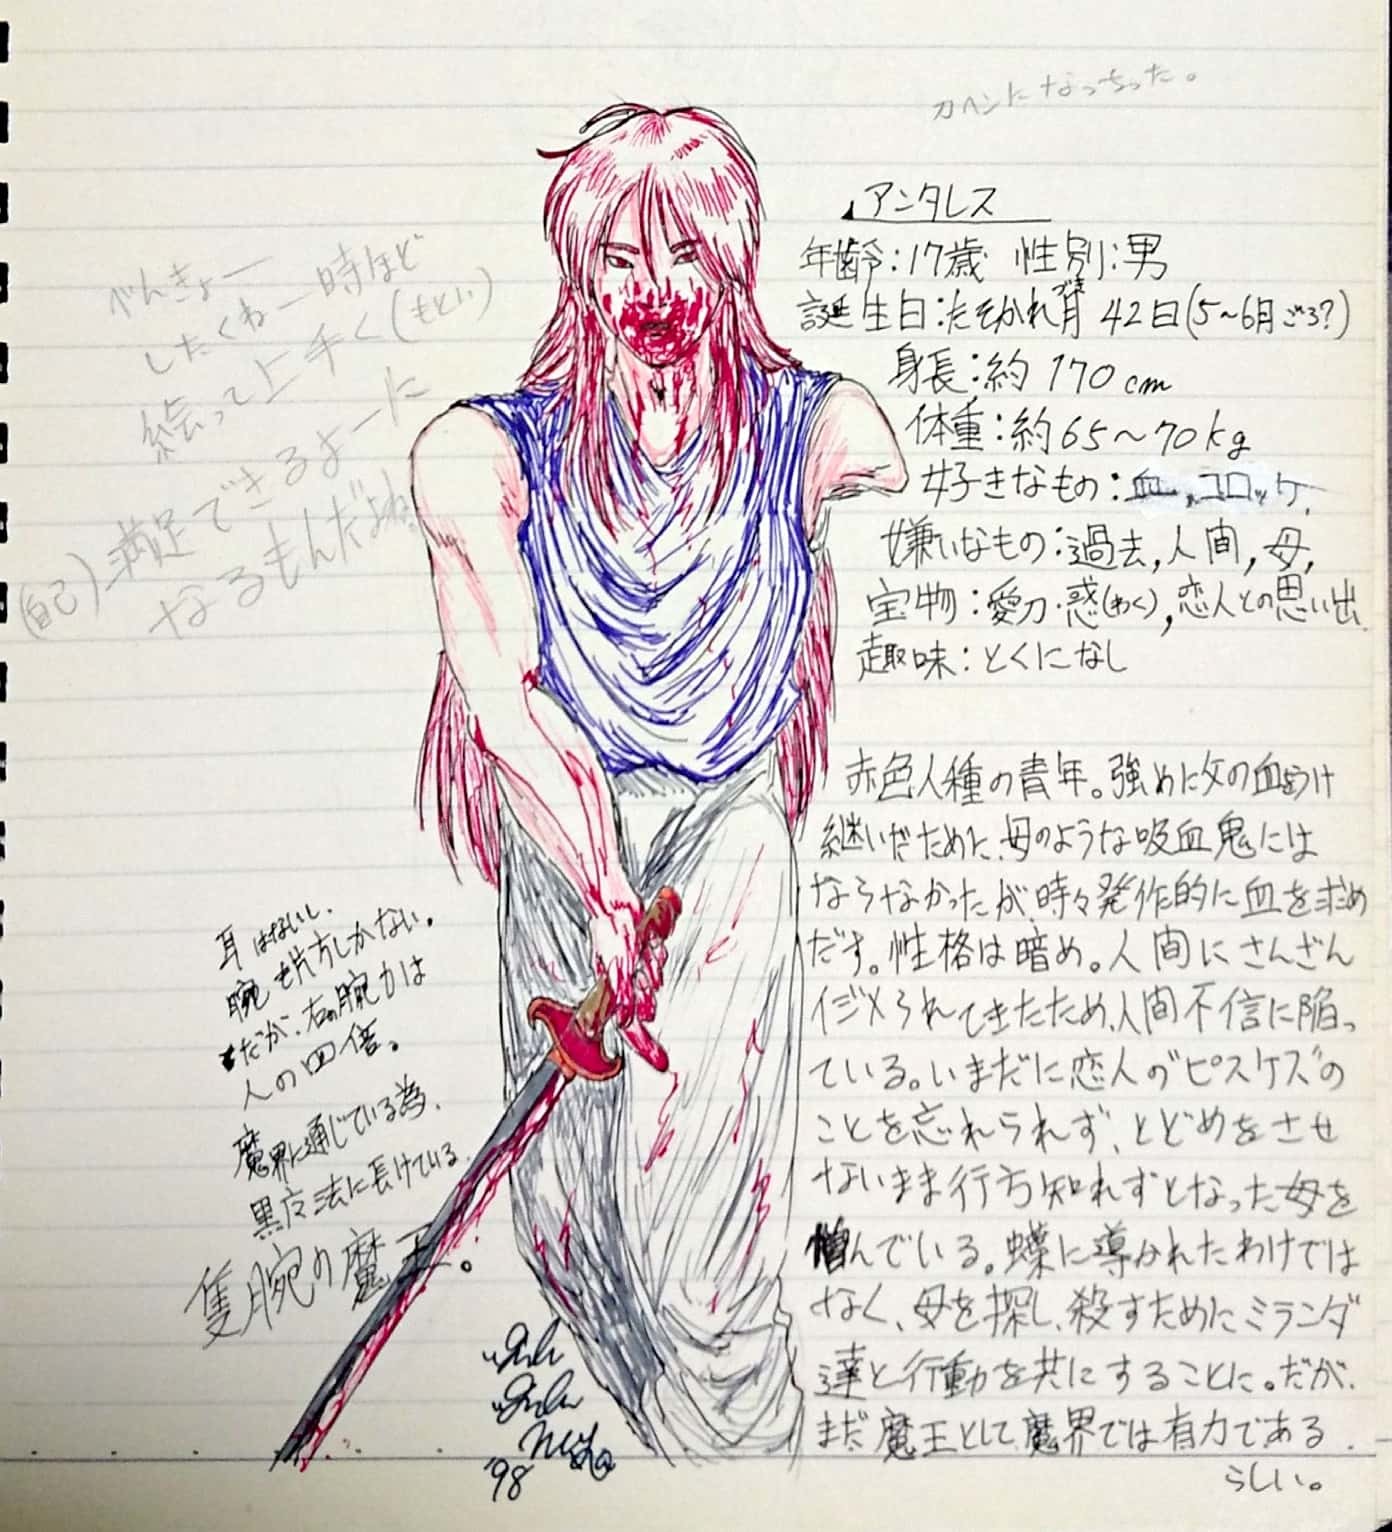 刀ヘンになっちった。
アンタレス
年齢:17歳 性別:男
誕生日:たそかれ月 42日(5〜6月ごろ?)
づき
身長:約170cm
体重:約65〜70kg
好きなもの:血,コロッケ,
嫌いなもの:過去,人間,母,
宝物:愛刀・惑(わく),恋人との思い出
趣味:とくになし
赤色人種の青年。強めに父の血を受け
継いだために、母のような吸血鬼には
ならなかったが、時々発作的に血を求め
だす。性格は暗め。人間にさんざん
イジメられてきたため、人間不信に陥っ
ている。いまだに恋人の"ピスケス"の
ことを忘れられず、とどめをさせ
ないまま行方知れずとなった母を
憎んでいる。蝶に導かれたわけでは
なく、母を探し、殺すためにミランダ
達と行動を共にすることに。だが、
まだ魔王として魔界では有力である
らしい。
べんきょー
したくねー時ほど
絵って上手く(もとい)
(自己)満足できるよーに
なるもんだよね。
耳はないし、
腕も片方しかない。
だが、右の腕力は
人の四倍。
魔界に通じている為、
黒魔法に長けている。
隻腕の魔王。
'98